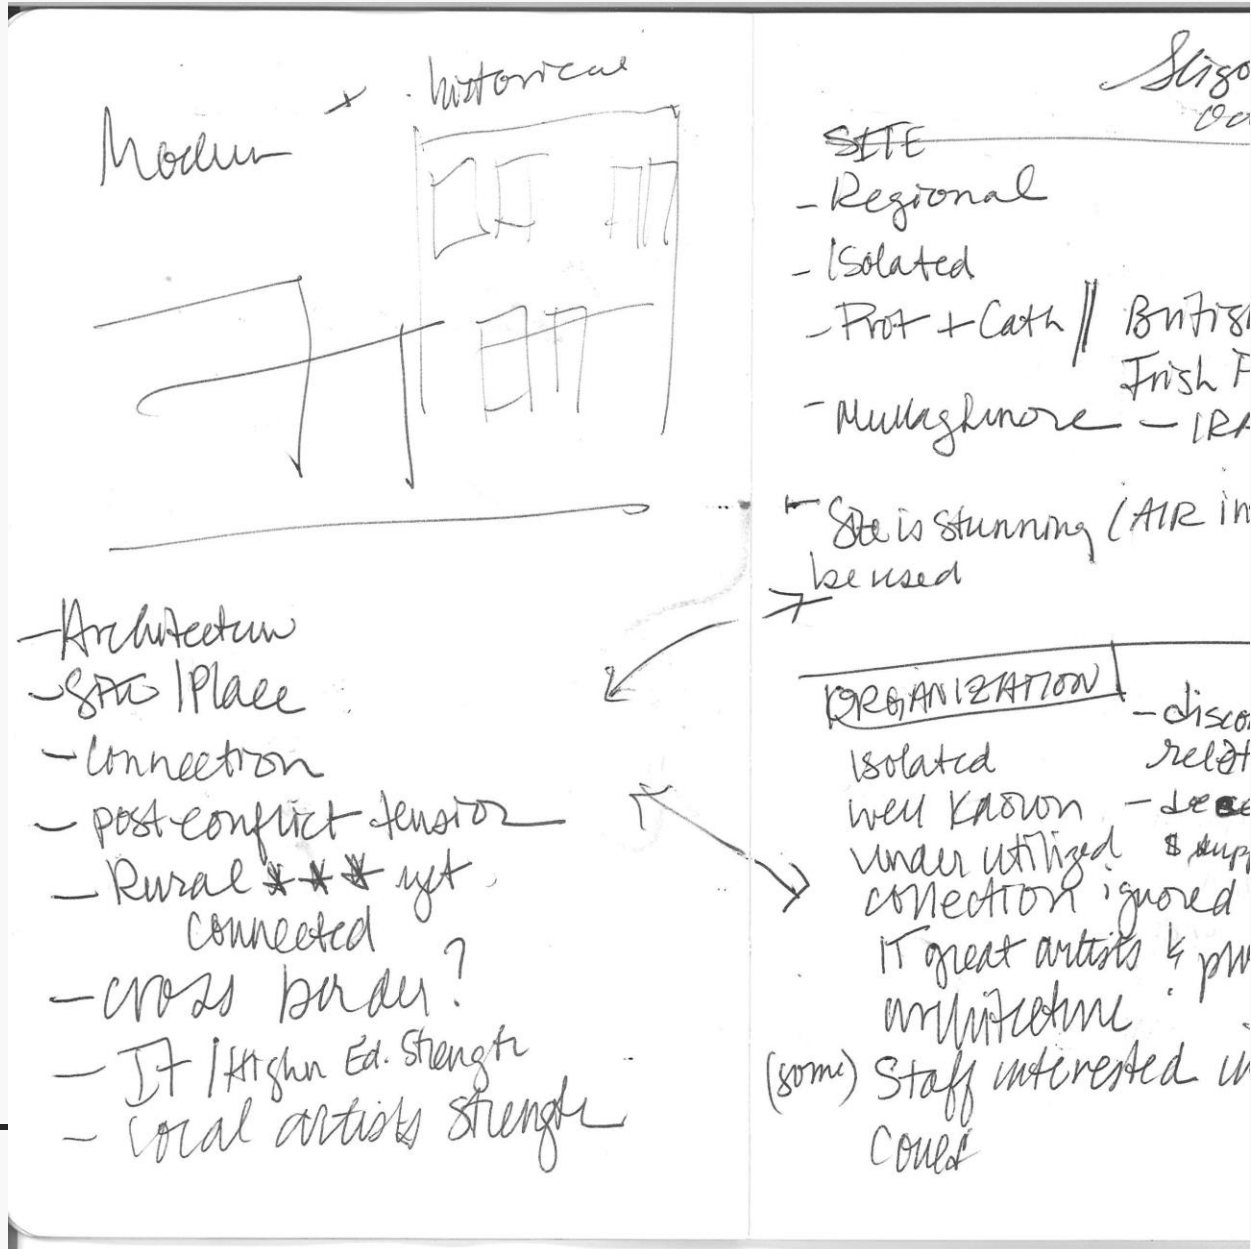 Modern + historical
- Architecture
- Site / Place
- Connection
- post-conflict tension
- Rural *** yet
connected
- cross border?
- IT / Higher Ed. Strength
- local artists strength
Sligo
SITE
- Regional
- Isolated
- Prot + Cath // British
Irish F
- Mullaghmore - IRA
- Site is stunning (AIR in
be used
ORGANIZATION
- discon
isolated
relat
well known
under utilized
$ supp
collection ignored
IT great artists &
architecture
(some) Staff interested in